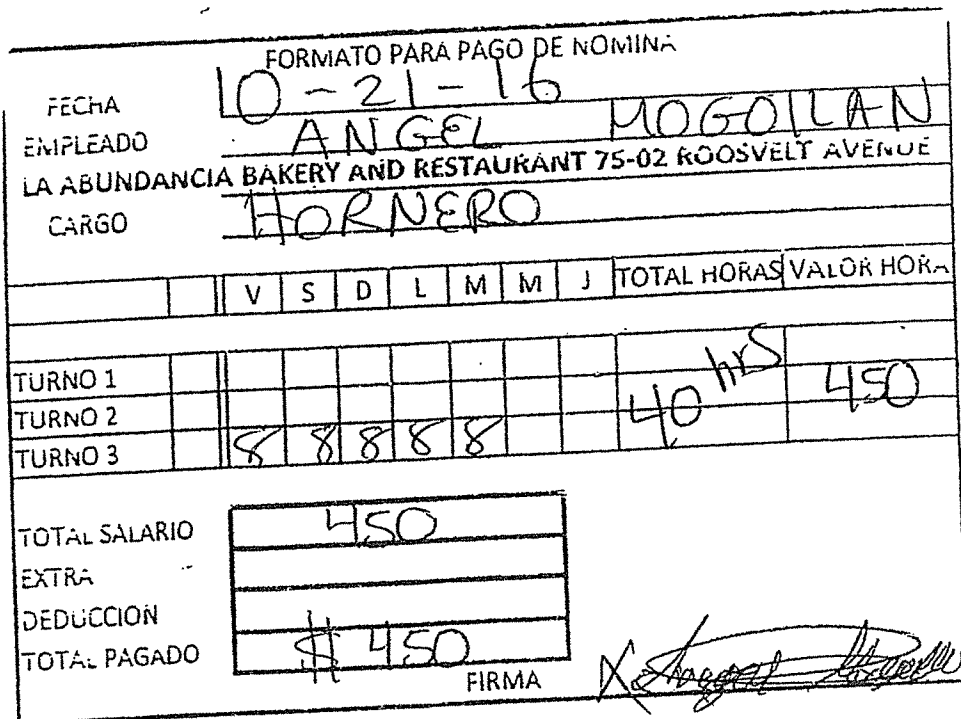 FORMATO PARA PAGO DE NOMINA
FECHA 10-21-16
EMPLEADO ANGEL MOGOILLAN
LA ABUNDANCIA BAKERY AND RESTAURANT 75-02 ROOSVELT AVENUE
CARGO HORNERO
V S D L M M J TOTAL HORAS VALOR HORA
TURNO 1
TURNO 2 40 hrS 450
TURNO 3 8 8 8 8 8
TOTAL SALARIO 450
EXTRA
DEDUCCION
TOTAL PAGADO $450
FIRMA X